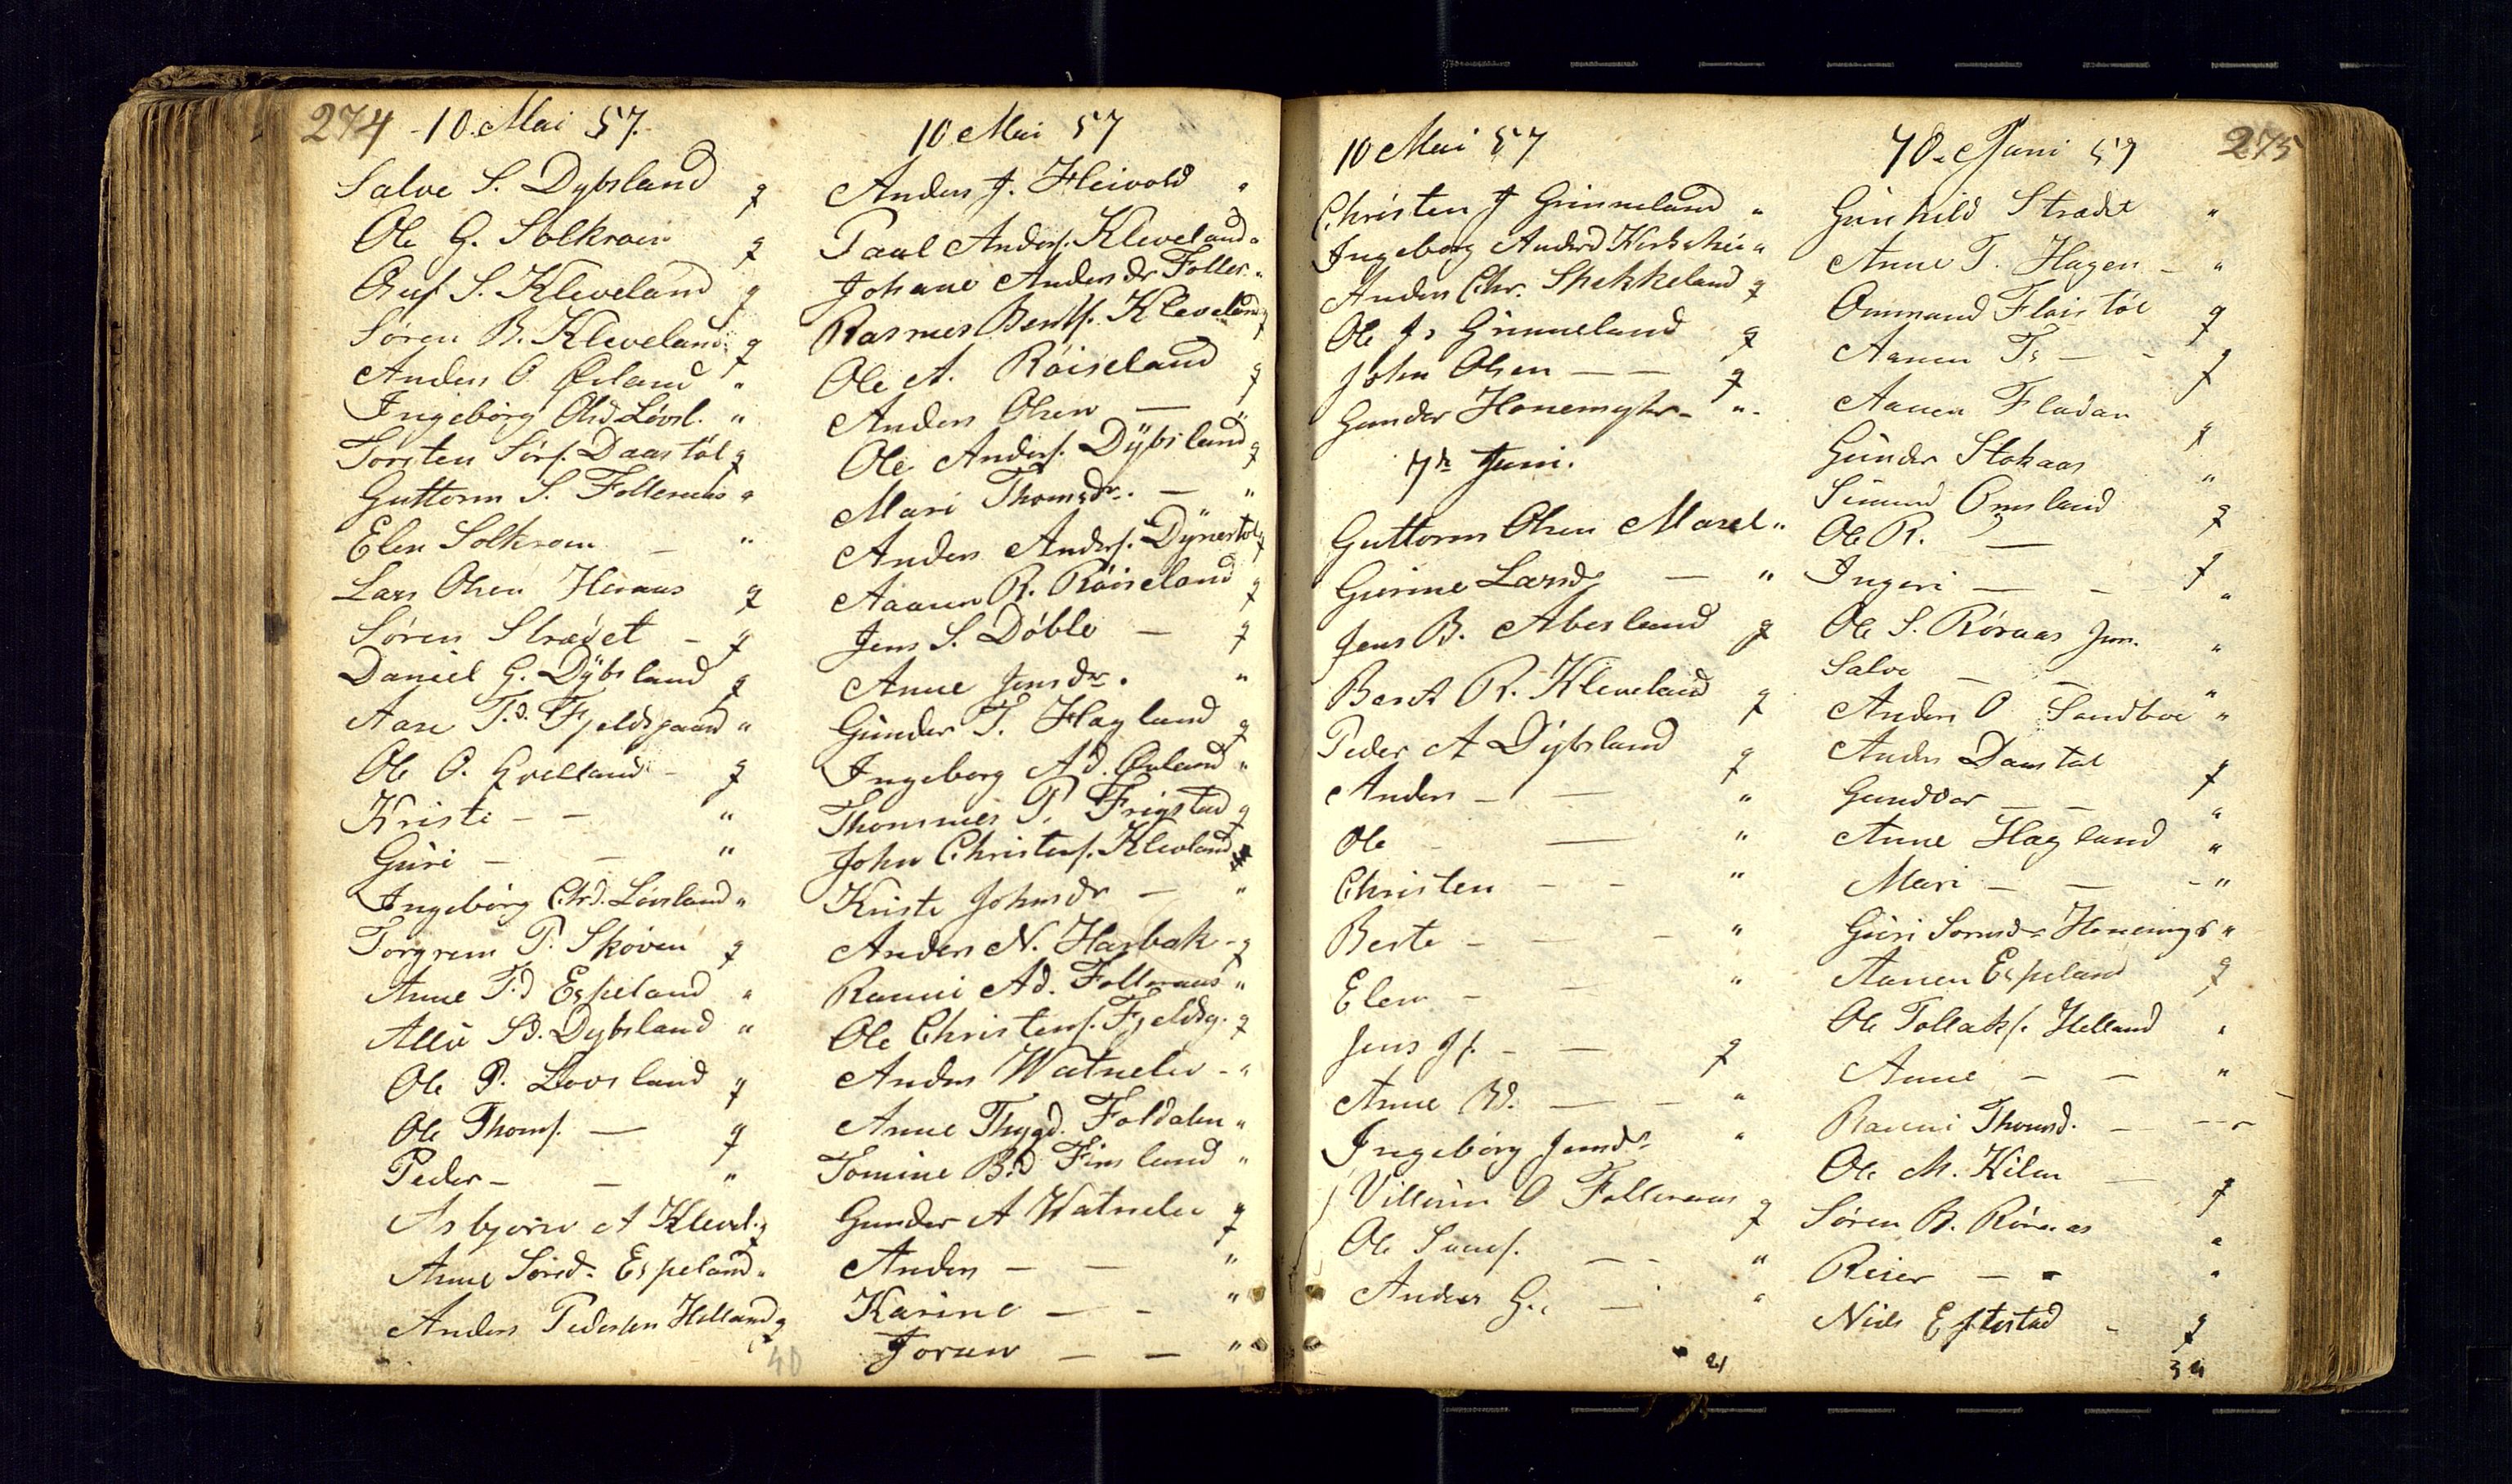 274 10. Mai 57.
Salve S. Dybsland g
Ole G. Solkraen g
Oluf S. Kleveland g
Søren B. Kleveland g
Anders O Øiland "
Ingebørg Olsd. Løvsl. "
Torsten Sørs. Daastøl g
Guttorm S. Folleraas "
Elen Solkraen — "
Lars Olsen Heraas g
Søren Strædet - g
Daniel G. Dÿbsland g
Aase T.d. Fjeldsgaard "
Ole O. Qvelland - g
Kristi - - "
Guri - - "
Ingebørg Chrd. Løvsland "
Torgrem P. Skoven g
Anne T.d Espeland "
Alli Sd. Dybsland "
Ole P. Lovsland g
Ole Thoms. — g
Peder - - "
Asbjørn A Klevel. g
Anne Sørsd. Espeland "
Anders Pedersen Helland g
40
10 Mai 57
Anders J. Heivold "
Paul Anders. Kleveland "
Johane Andersdr Foller. "
Rasmus Bents. Kleveland g
Ole A. Røiseland g
Anders Olsen — g
Ole Anders. Dÿbsland g
Mari Thomsdr. — "
Anders Anders. Dÿnestøl g
Aanen R. Røiseland g
Jens S. Døble — g
Anne Jensdr. "
Gunder T. Hagland g
Ingeborg Ad. Øiland "
Thommes P. Frigstad g
John Christens. Klevland g
Kristi Johnsdr — "
Anders N. Harbak - g
Ranni Ad. Folleraas "
Ole Christens. Fjeldsg. g
Anders Watneliv - "
Anne Thygd. Foldalen "
Tomine B.d Finsland "
Gunder A Watneliv g
Anders — — "
Karine — - "
Joren — — "
10 Mai 57
Christen J Grimmeland "
Ingeborg Andersd Kirkehei "
Anders Chr. Skekkeland g
Ole Js Grimmeland g
John Olsen — — g
Gunder Honemyhr - "
7de Juni.
Guttorm Olsen Masel "
Gurine Larsd — "
Jens B. Abesland g
Bent R. Kleveland g
Peder A Dybsland g
Anders - — "
Ole - — "
Christen - - "
Berte - - "
Elen - — "
Jens Js. - — g
Anne Bd. — - "
Ingeborg Jensdr "
Villum O Folleraas g
Ole Sams. — "
Anders G. — "
21
7de Juni 57 275
Gunhild Strædet "
Anne T. Hagen - "
Ommund Flaistøl g
Aanen Ts — - g
Aanen Fladan g
Gunder Stokaas "
Simund Omsland g
Ole R. — g
Ingeri — - "
Ole S. Røraas Jun. "
Salve — — "
Anders O Sandboe "
Anders Daastøl g
Gundvor — — "
Anne Hagland "
Mari — — "
Guri Sørensdr Honemyr "
Aanen Espeland g
Ole Tollaks. Helland "
Anne — — "
Ranni Thomsd. — "
Ole M. Kilen — g
Søren B. Røraas "
Reier — - "
Niels Eftestad - g